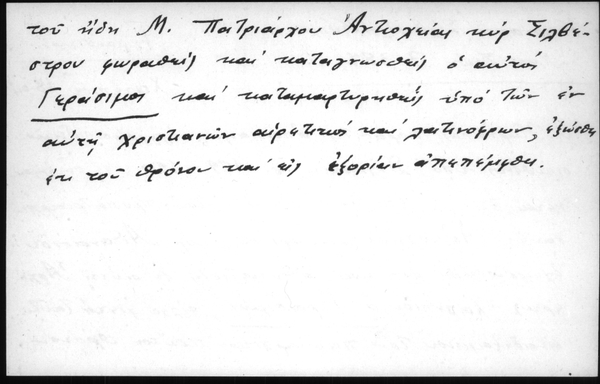 τοῦ ἤδη Μ. Πατριάρχου Ἀντιοχείας κὺρ Σιλβέ-
στρου φωραθεὶς καὶ καταγνωσθεὶς ὁ αὐτὸς
Γεράσιμος καὶ καταμαρτυρηθεὶς ὑπὸ τῶν ἐν
αὐτῇ χριστιανῶν αἱρετικὸς καὶ λατινόφρων, ἐξώσθη
ἐκ τοῦ θρόνου καὶ εἰς ἐξορίαν ἀπεπέμφθη.